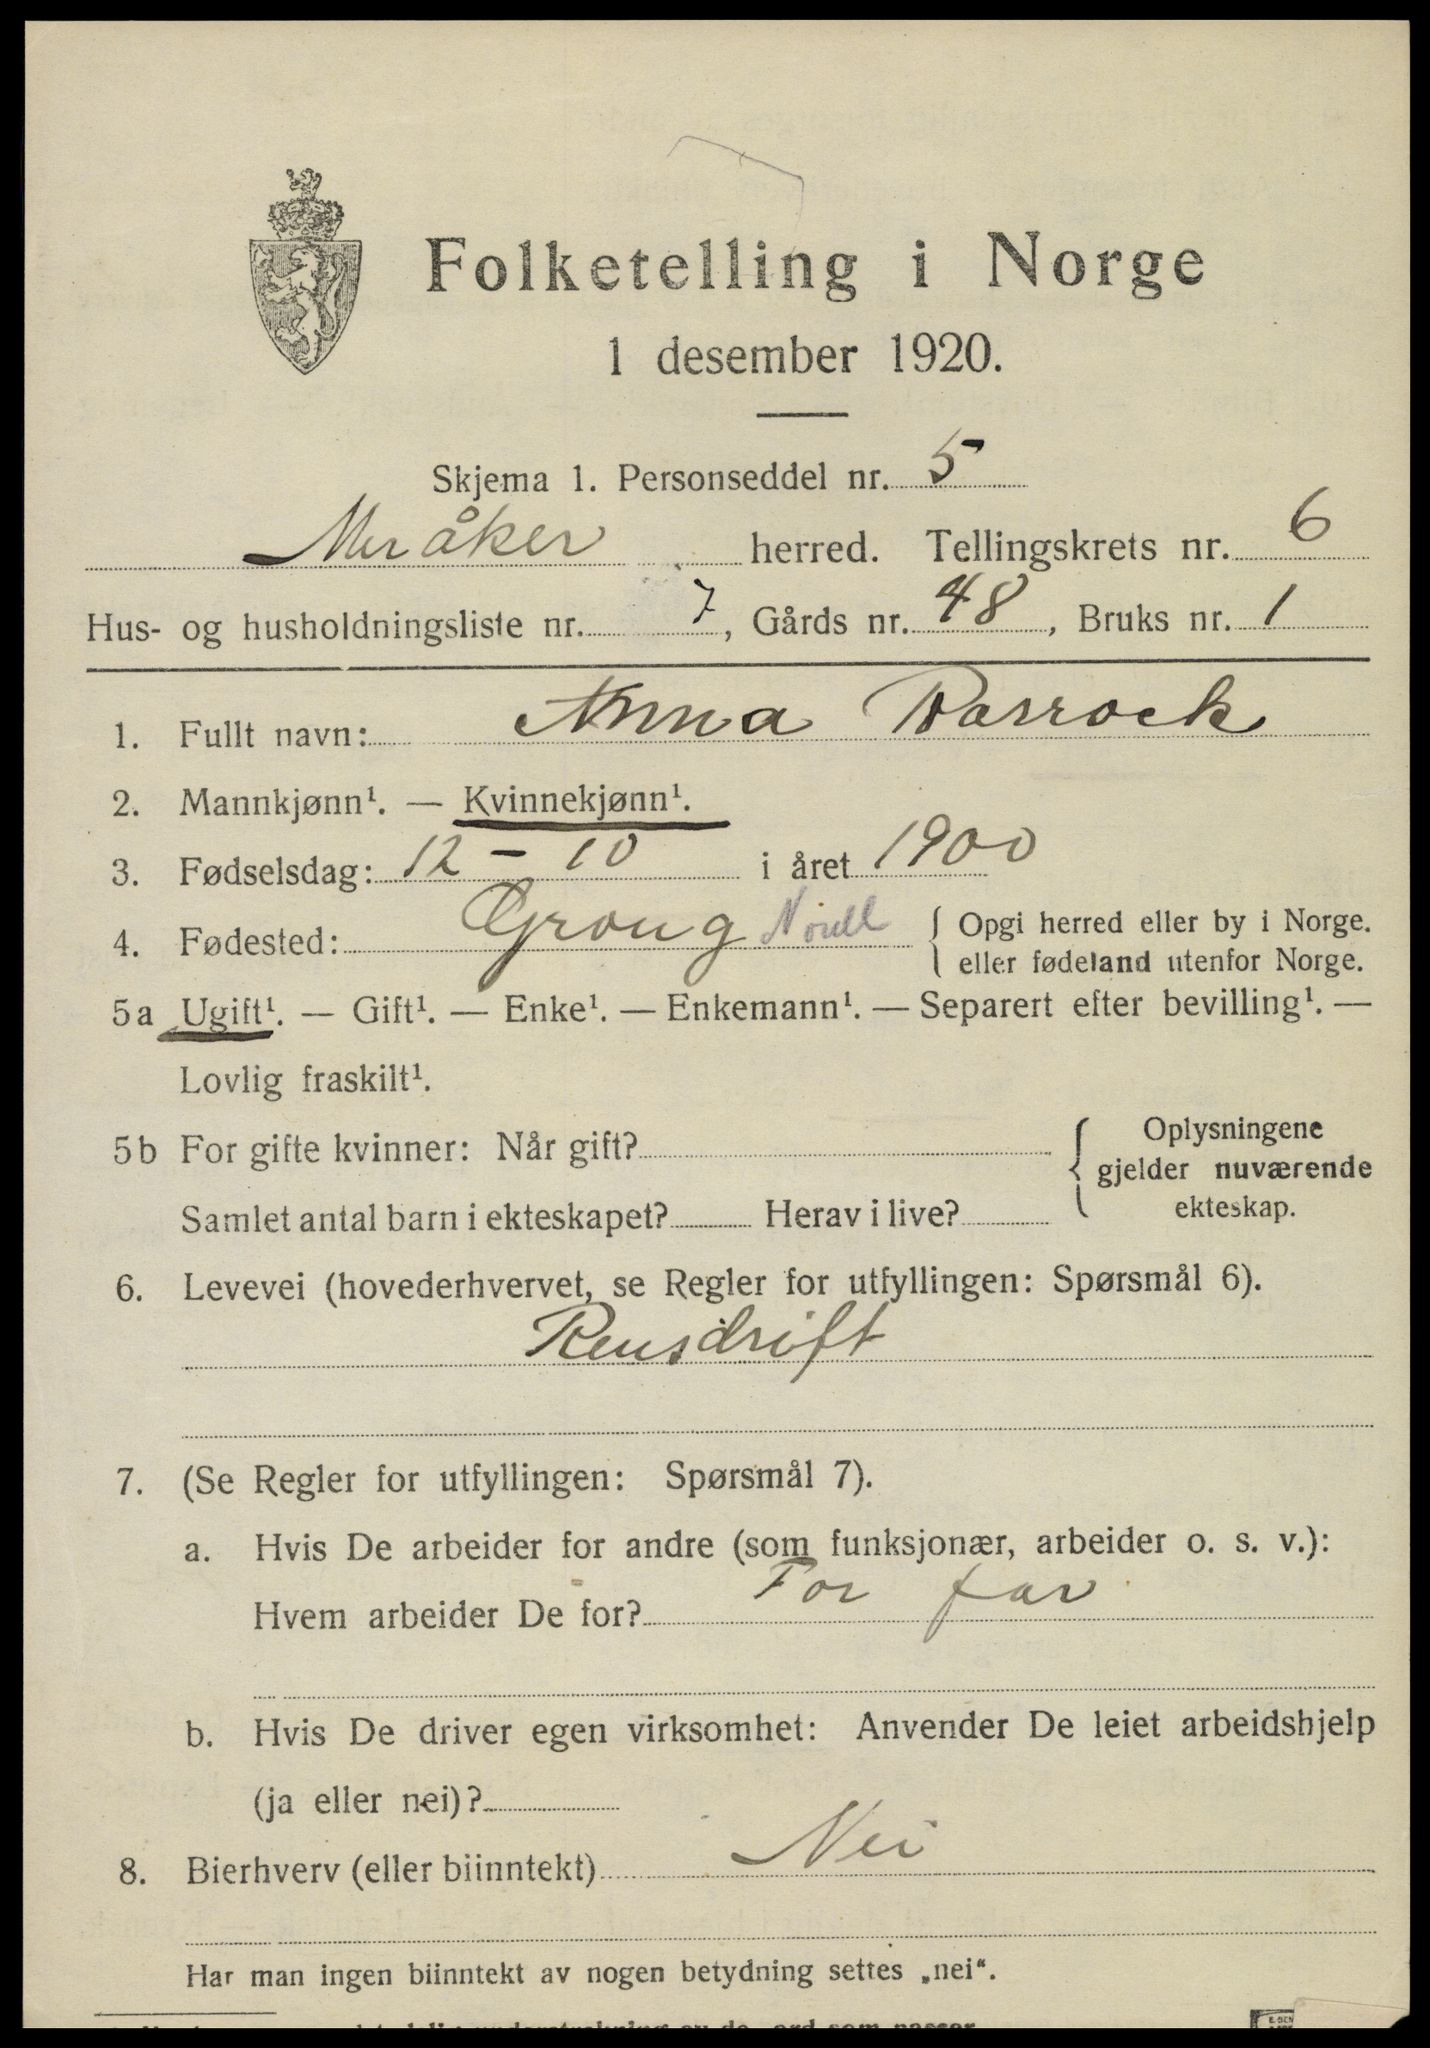 Folketelling i Norge
1 desember 1920.
Skjema 1. Personseddel nr. 5
Meråker herred. Tellingskrets nr. 6
Hus- og husholdningsliste nr. 7, Gårds nr. 48, Bruks nr. 1
1. Fullt navn: Anna Barrock
2. Mannkjønn¹. — Kvinnekjønn¹.
3. Fødselsdag: 12 - 10 i året 1900
4. Fødested: Grong { Opgi herred eller by i Norge.
eller fødeland utenfor Norge.
5a Ugift¹. — Gift¹. — Enke¹. — Enkemann¹. — Separert efter bevilling¹. —
Lovlig fraskilt¹.
5b For gifte kvinner: Når gift? { Oplysningene
gjelder nuværende
Samlet antal barn i ekteskapet? Herav i live? ekteskap.
6. Levevei (hovederhvervet, se Regler for utfyllingen: Spørsmål 6).
Rensdrift
7. (Se Regler for utfyllingen: Spørsmål 7).
a. Hvis De arbeider for andre (som funksjonær, arbeider o. s. v.):
Hvem arbeider De for? For far
b. Hvis De driver egen virksomhet: Anvender De leiet arbeidshjelp
(ja eller nei)?
8. Bierhverv (eller biinntekt) Nei
Har man ingen biinntekt av nogen betydning settes „nei“.